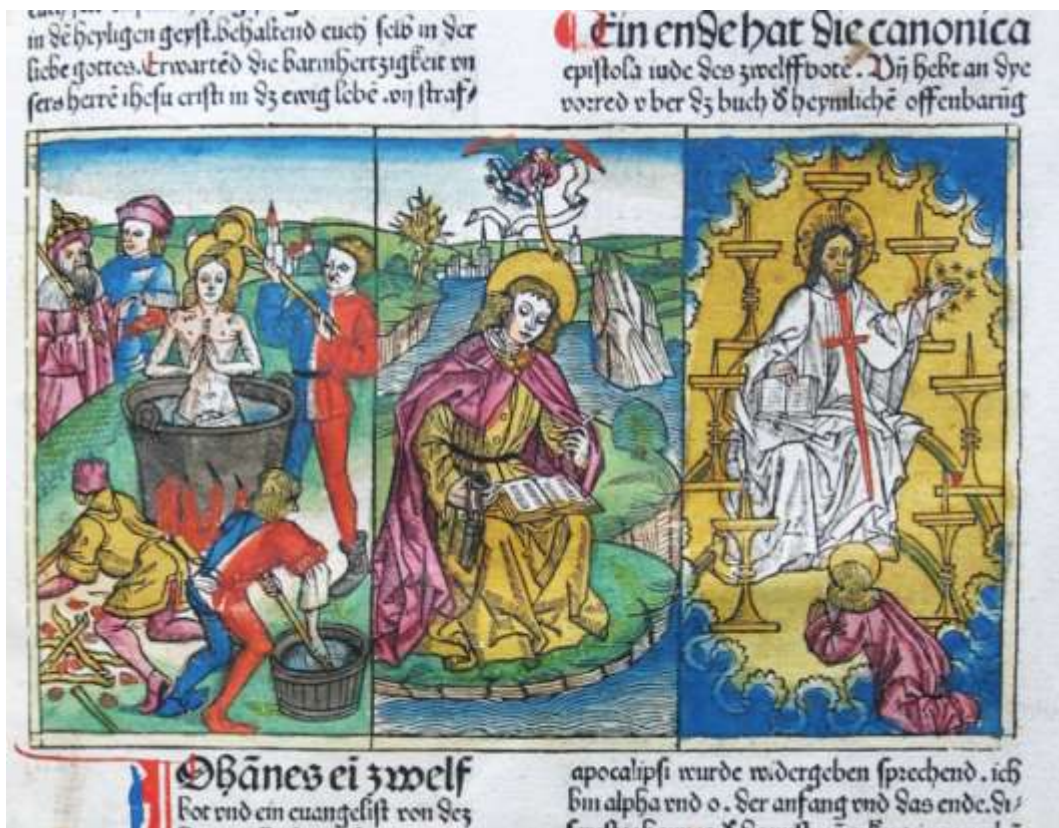 in dē heyligen geyst. behaltend euch selb in der
liebe gottes. Erwartēd die barmhertzigkeit vn
sers herrē ihesu cristi in dz ewig lebē. vn straf/
Ein ende hat die canonica
epistola iude des zwelffbotē. Vn̄ hebt an dye
vorred v ber dz buch d heymlichē offenbarūg
Ohānes ei zwelf
bot vnd ein euangelist von dez
apocalipsi wurde widergeben sprechend. ich
bin alpha vnd o. der anfang vnd das ende. di/